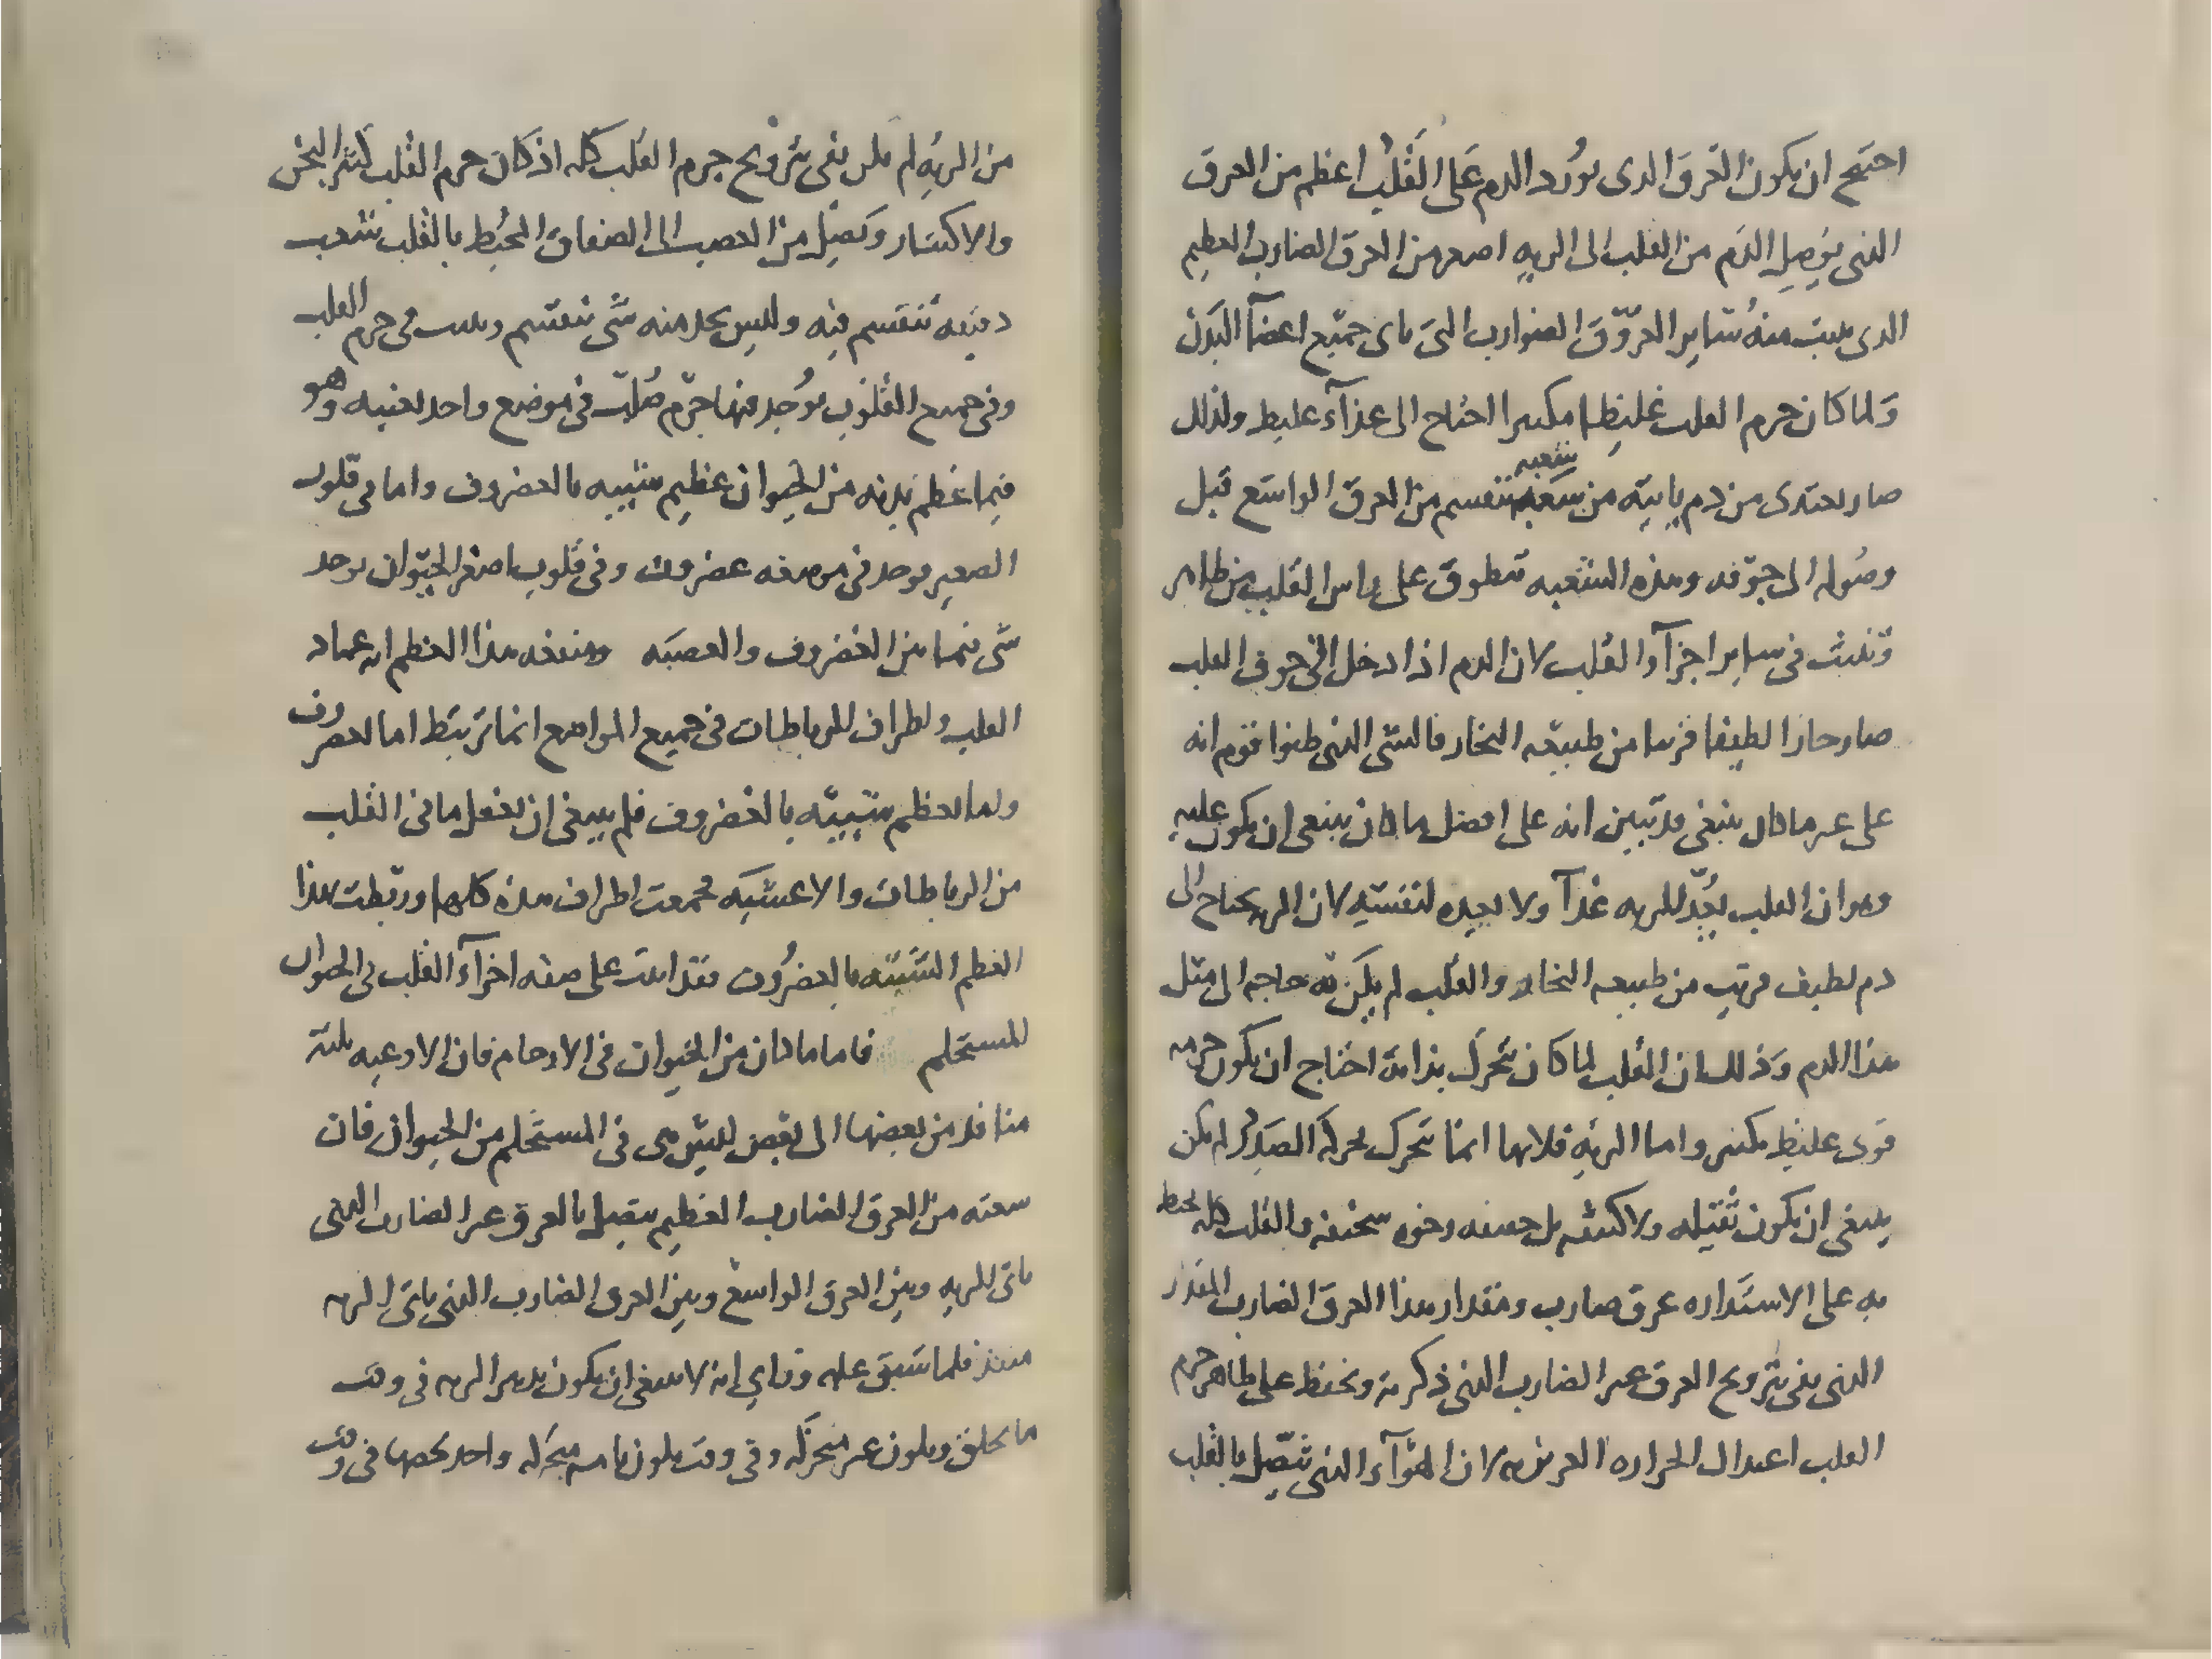 احتيج ان يكون العرق الدى يورد الدم على القلب اعظم من العرق
الذى يوصل الدم من القلب الى الريه اصغر من العرق الضارب العظيم
الدى ينبت منه ساير العروق الضوارب التى ياتى جميع اعضآ البدن
ولما كان جرم القلب غليظا مكتنزا احتاج الى غذآء غليظ ولذلك
صار يغتدى من دم ياتيه من شعبة تنقسم من العرق الواسع قبل
وصوله الى جوفه وهذه الشعبه تطوق على راس القلب من ظاهر
وتنبث فى ساير اجزآء القلب لان الدم اذا دخل الى جوف القلب
صار حارا لطيفا قريبا من طبيعه البخار فالشى الذى ظنوا قوم انه
على غير ما كان ينبغى قد تبين انه على افضل ما كان ينبغى ان يكون عليه
وهو ان القلب يعد للريه غذآ ولا يعده لنفسه لان الريه يحتاج الى
دم لطيف قريب من طبيعه البخار والقلب لم يكن به حاجه الى مثل
هذا الدم وذلك ان القلب لما كان يتحرك بذاته احتاج ان يكون جرمه
قوى غليظ مكتنز واما الريه فلانها انما تتحرك بحركه الصدر لم يكن
ينبغى ان يكون ثقيله ولا كثيفه بل خفيفه رخوه سخيفه والقلب كله يحيط
به على الاستداره عرق ضارب ومقدار هذا العرق الضارب المقدار
الذى يفى بترويح العرق غير الضارب الذى ذكرته ويحفظ على ظاهر جرم
القلب اعتدال الحراره الغريزيه لان الهوآء الذى يتصل بالقلب
من الريه لم يكن يفى بترويح جرم القلب كله اذ كان جرم القلب كثير الثخن
والاكتناز ويتصل من العصب الى الصفاق المحيط بالقلب شعب
دقيقه تنقسم فيه وليس يجد منه شى ينقسم وينبث فى جرم القلب
وفى جميع القلوب يوجد فيها جرم صلب فى موضع واحد بعينه وهو
فيما عظم بدنه من الحيوان عظيم شبيه بالغضروف واما فى قلوب
الصغير يوجد فى موضعه غضروف وفى قلوب اصغر الحيوان يوجد
شى فيما بين الغضروف والعصبه ومنفعه هذا العظم انه عماد
القلب واطراف الرباطات فى جميع المواضع انما ترتبط اما بالغضروف
واما بعظم شبيه بالغضروف فلم ينبغى ان يغفل ما فى القلب
من الرباطات والاغشيه فجمعت اطراف هذه كلها وربطت بهذا
العظم الشبيه بالغضروف فقد اتيت على صفه اجزآء القلب فى الحيوان
المستحلم فاما ما كان من الحيوان فى الارحام فان الاوعيه ثلثه
منافذ من بعضها الى بعض ليس هى فى المستحلم من الحيوان فان
شعبه من العرق الضارب العظيم يتصل بالعرق غير الضارب الذى
ياتى الريه وبين العرق الواسع وبين العرق الضارب الذى ياتى الريه
منفذ فلما سبق عله وراى انه لا ينبغى ان يكون تدبير الريه فى وقت
ما يخلق ويكون غير متحركه وفى وقت يكون تامه متحركه واحد نحصها فى وقت